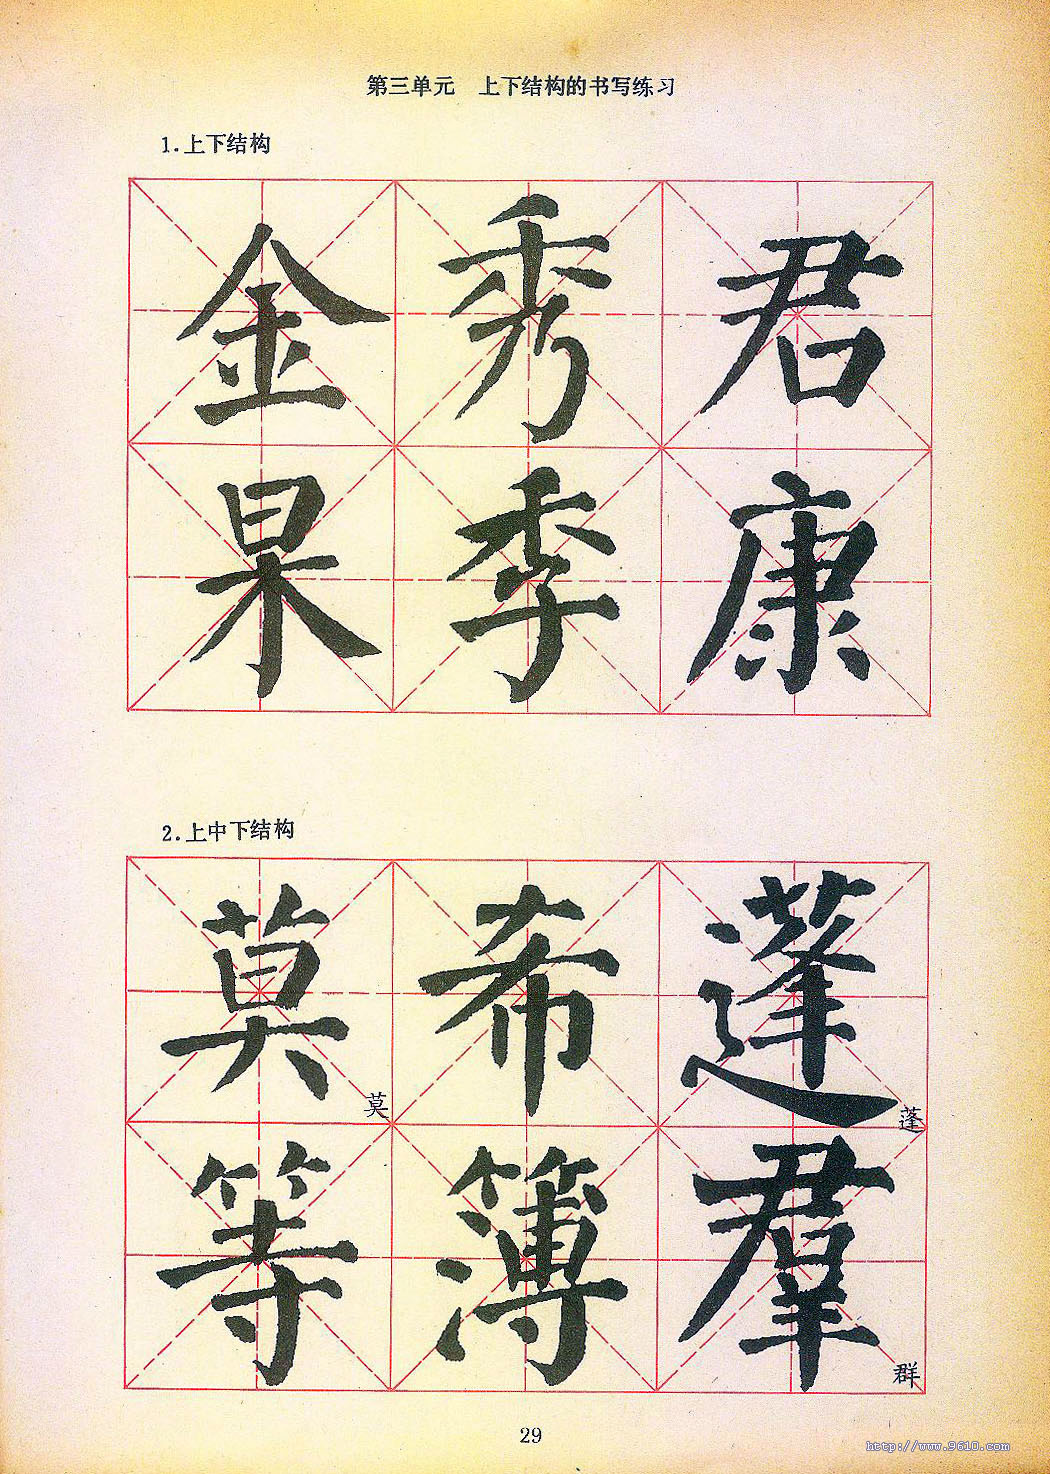 第三单元 上下结构的书写练习
1.上下结构
金秀君
果季康
2.上中下结构
莫希蓬
莫 蓬
等簿羣
群
29
http://www.9610.com